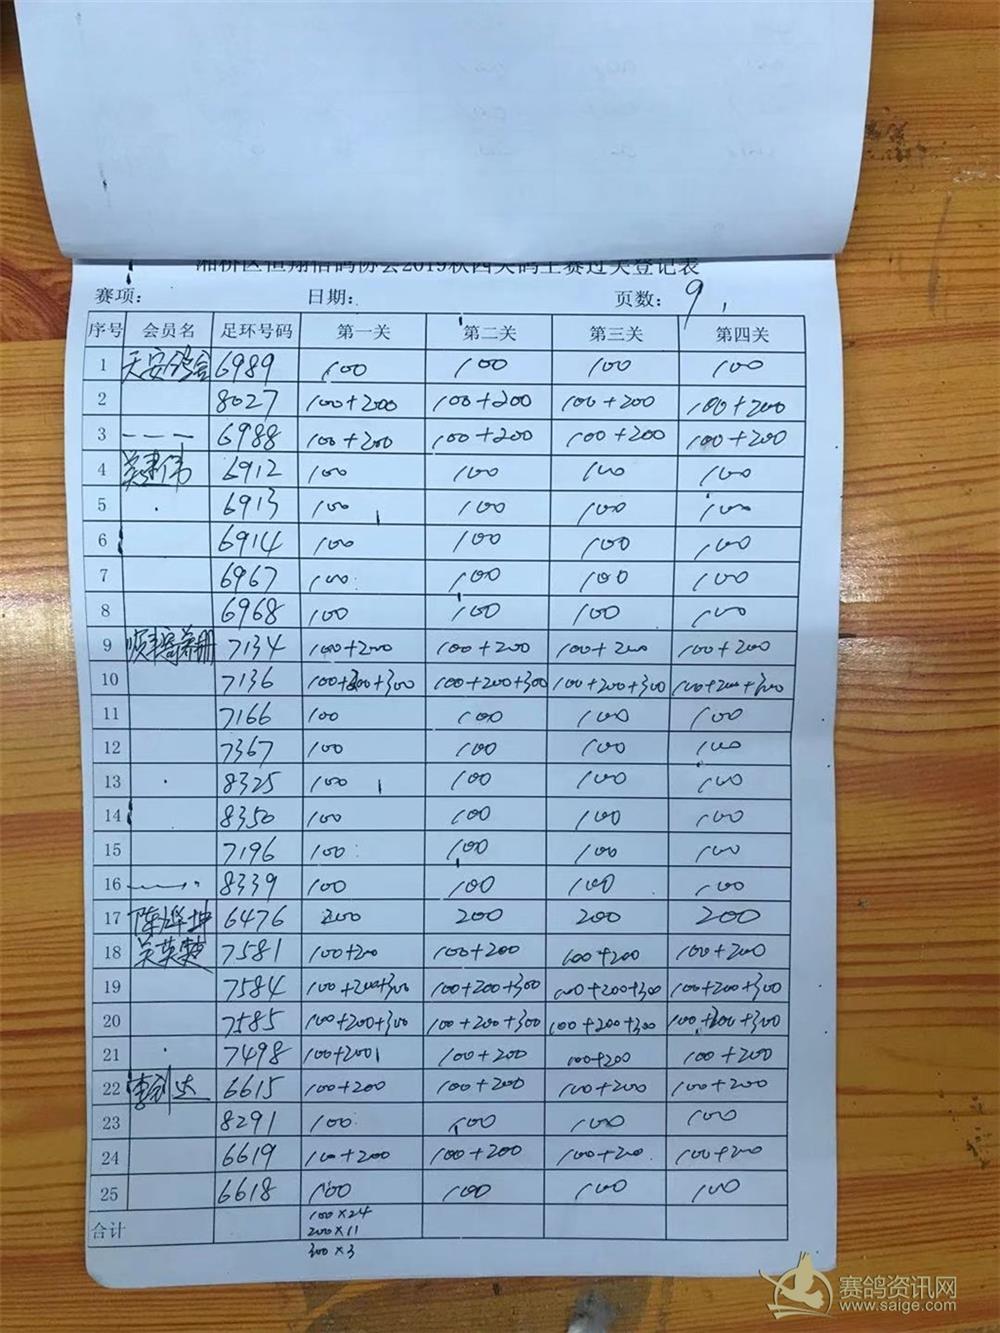 湘桥区恒翔信鸽协会2019秋四关鸽王赛过关登记表
赛项： 日期： 页数： 9
序号 会员名 足环号码 第一关 第二关 第三关 第四关
1 天安鸽舍 6989 100 100 100 100
2 8027 100+200 100+200 100+200 100+200
3 6988 100+200 100+200 100+200 100+200
4 吴建伟 6912 100 100 100 100
5 6913 100 100 100 100
6 6914 100 100 100 100
7 6967 100 100 100 100
8 6968 100 100 100 100
9 7134 100+200 100+200 100+200 100+200
10 7136 100+200+300 100+200+300 100+200+300 100+200+300
11 7166 100 100 100 100
12 7367 100 100 100 100
13 8325 100 100 100 100
14 8350 100 100 100 100
15 7196 100 100 100 100
16 8339 100 100 100 100
17 陈泽坤 6476 200 200 200 200
18 吴英楚 7581 100+200 100+200 100+200 100+200
19 7584 100+200+300 100+200+300 100+200+300 100+200+300
20 7585 100+200+300 100+200+300 100+200+300 100+200+300
21 7498 100+200 100+200 100+200 100+200
22 李创达 6615 100+200 100+200 100+200 100+200
23 8291 100 100 100 100
24 6619 100+200 100+200 100+200 100+200
25 6618 100 100 100 100
合计 100×24
200×11
300×3
赛鸽资讯网
www.saige.com